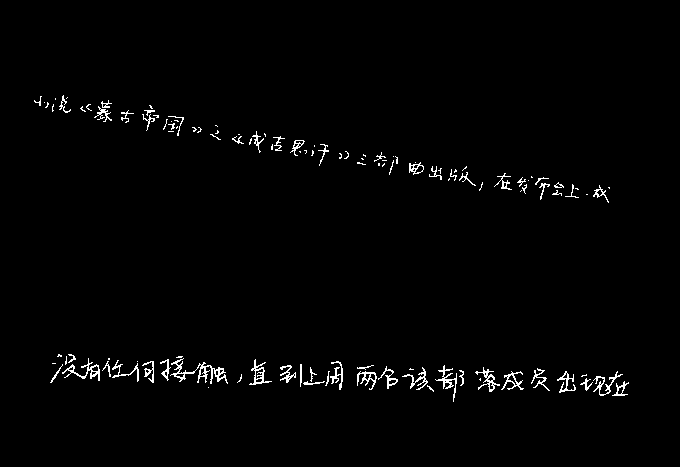 小说《蒙古帝国》之《成吉思汗》三部曲出版，在发布会上.成
没有任何接触，直到上周两名该部落成员出现在